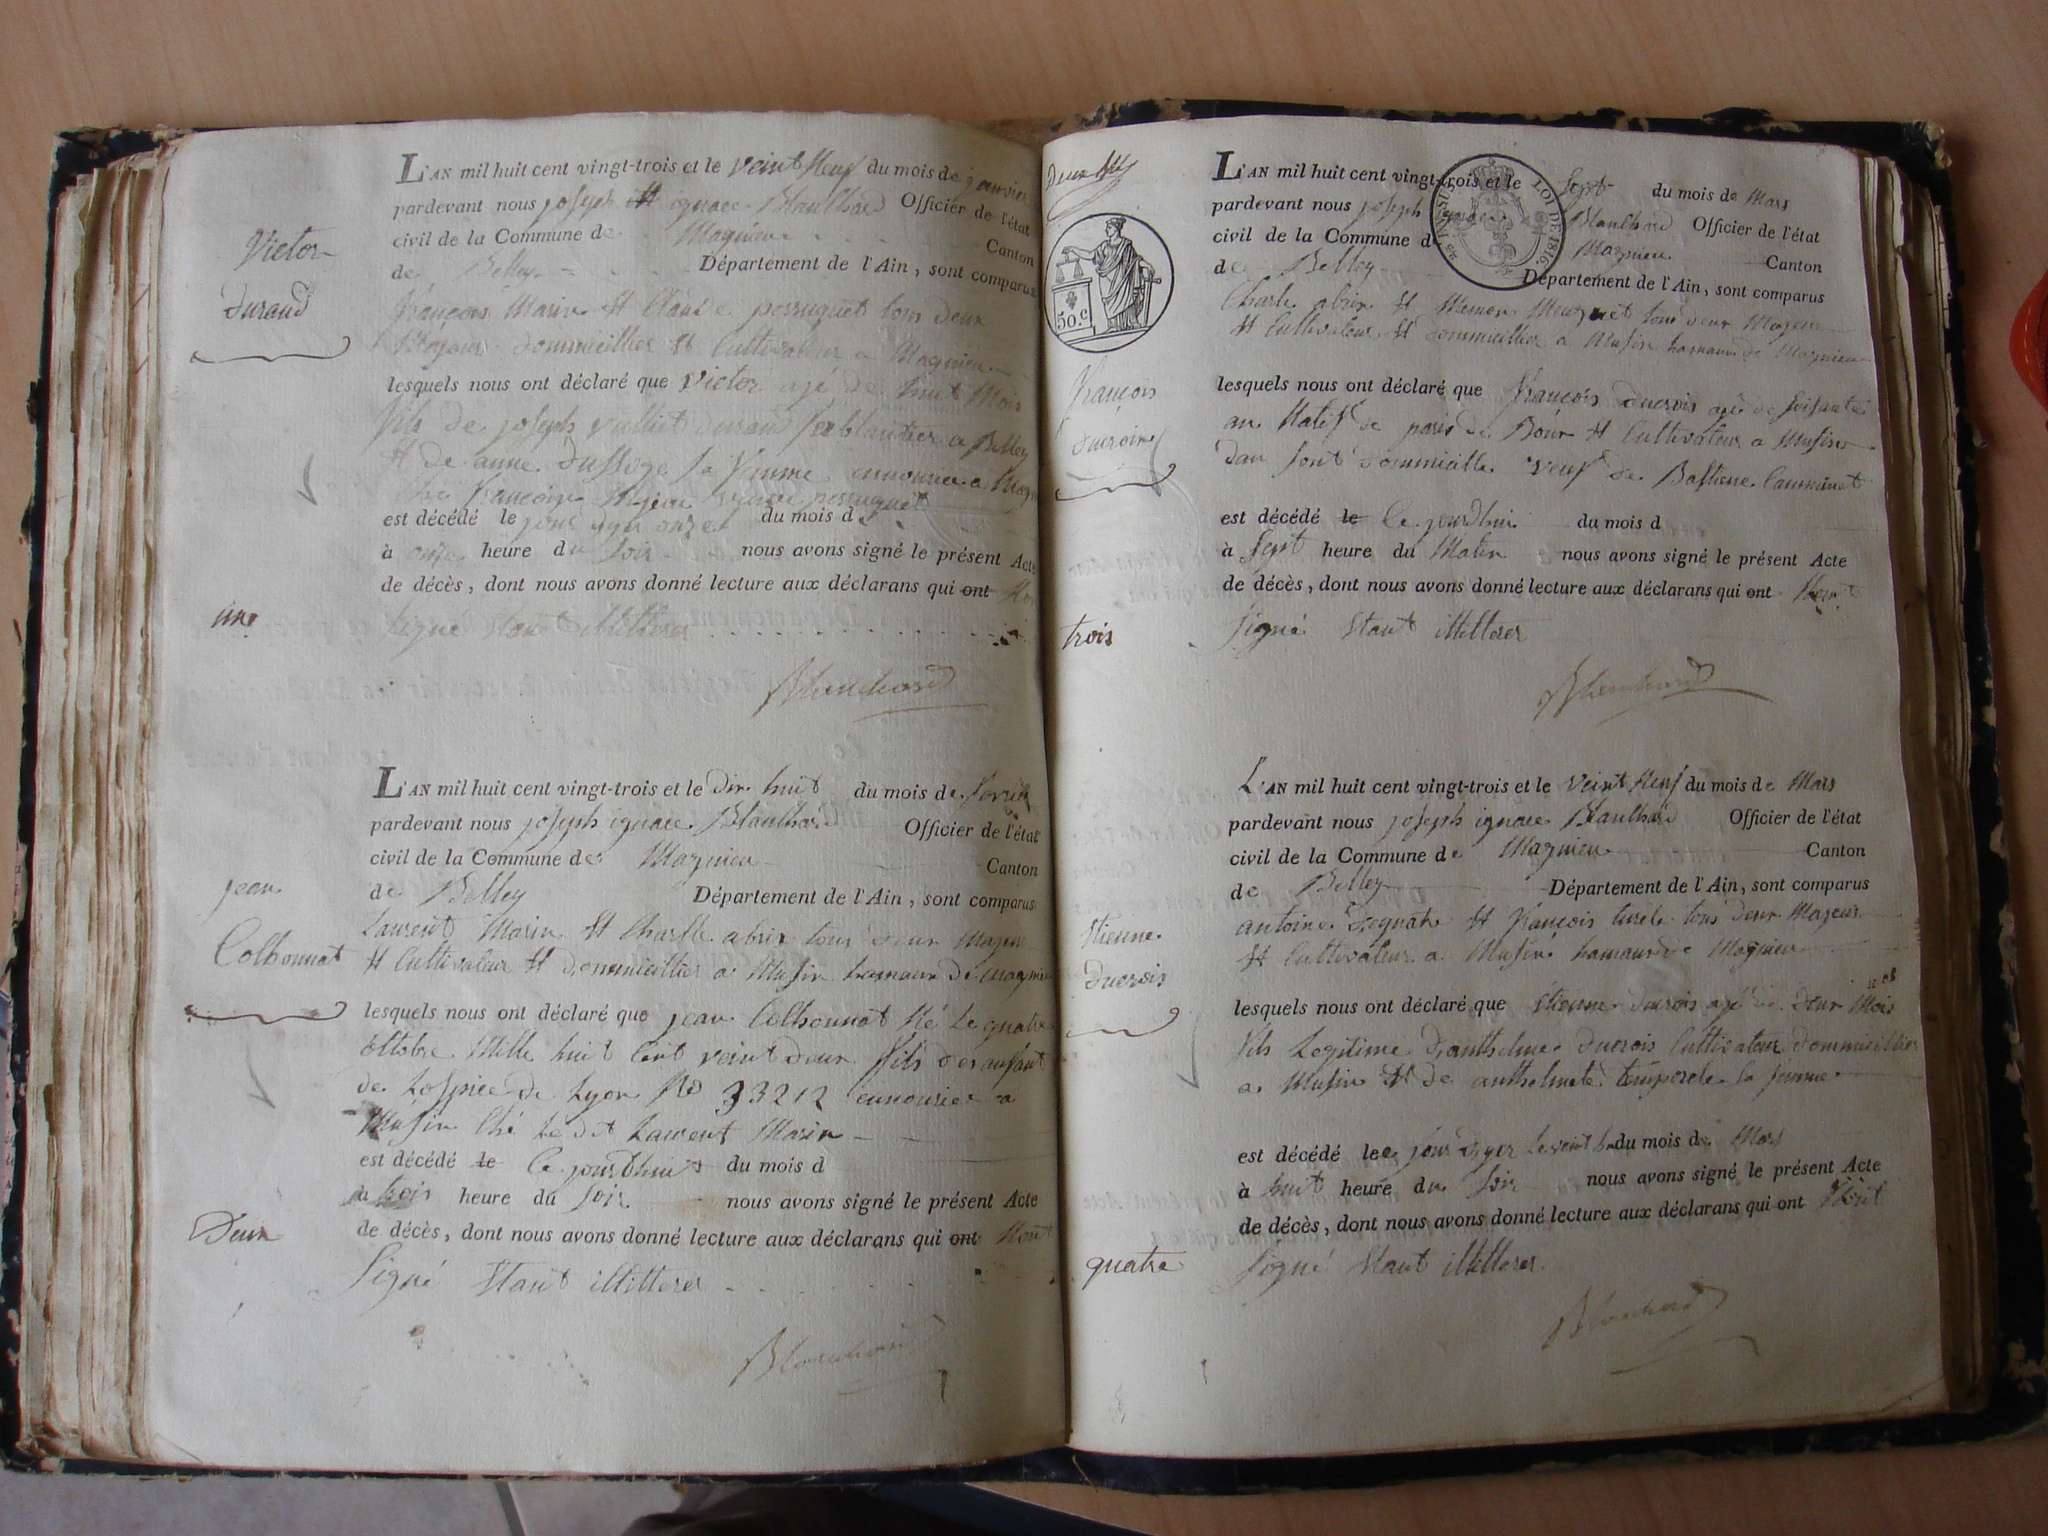 Victor
durand
une
L'AN mil huit cent vingt-trois et le veint Neuf du mois de janvier
pardevant nous joseph ignace Blanchard Officier de l'état
civil de la Commune de Magnieu Canton
de Belley Département de l'Ain, sont comparus
françois Marin et Claude perruquet tous deux
Majeur dommicillier et Cultivateur a Magnieu
lesquels nous ont déclaré que victor agé de huit Mois
fils de joseph vulliet durand a Belley
et de anne la famme ennourice a
françoise perruquet
est décédé le jour dyer du mois d
à onze heure du Soir nous avons signé le présent Acte
de décès, dont nous avons donné lecture aux déclarans qui ont Non
Signé Etant illitterer
Blanchard
jean
Colhonnat
Deux
L'AN mil huit cent vingt-trois et le dix huit du mois de fevrier
pardevant nous joseph ignace Blanchard Officier de l'état
civil de la Commune de Magnieu Canton
de Belley Département de l'Ain, sont comparus
Laurent Marin et Charle abrix tous deux Majeur
et Cultivateur et dommicillier a Musin hamaux de magnieu
lesquels nous ont déclaré que jean Colhonnat Né Le quatre
Octobre Mille huit Cent veint deux fils des anfant
de Lospice de Lyon No 33212 ennourice a
Musin Ché Le dit Laurent Marin
est décédé le Ce jourdhui du mois d
à trois heure du Soir nous avons signé le présent Acte
de décès, dont nous avons donné lecture aux déclarans qui ont Nont
Signé Etant illitterer
Blanchard
50.c
LOI DE 1816.
françois
ducroix
trois
L'AN mil huit cent vingt-trois et le Sept du mois de Mars
pardevant nous joseph ignace Blanchard Officier de l'état
civil de la Commune de Magnieu Canton
de Belley Département de l'Ain, sont comparus
Charle abrix et tous deux Majeur
et Cultivateur et dommicillier a Musin hamaux de Magnieu
lesquels nous ont déclaré que françois ducrois agé de Soisante
an Natif de et Cultivateur a Musin
dommicille veuf de Bastiene
est décédé le Ce jourdhui du mois d
à Sept heure du Matin nous avons signé le présent Acte
de décès, dont nous avons donné lecture aux déclarans qui ont Nont
Signé Etant illitterer
Blanchard
Etienne
ducrois
quatre
L'AN mil huit cent vingt-trois et le veint Neuf du mois de Mars
pardevant nous joseph ignace Blanchard Officier de l'état
civil de la Commune de Magnieu Canton
de Belley Département de l'Ain, sont comparus
antoine et françois tous deux Majeur
et Cultivateur a Musin hamaux de Magnieu
lesquels nous ont déclaré que Etienne ducrois agé de deux Mois
fils Legitime danthelme ducrois Cultivateur dommicillier
a Musin et de anthelmete temporele la famme
est décédé le jour dyer le veint huit du mois de Mars
à huit heure du Soir nous avons signé le présent Acte
de décès, dont nous avons donné lecture aux déclarans qui ont Nont
Signé Etant illitterer
Blanchard